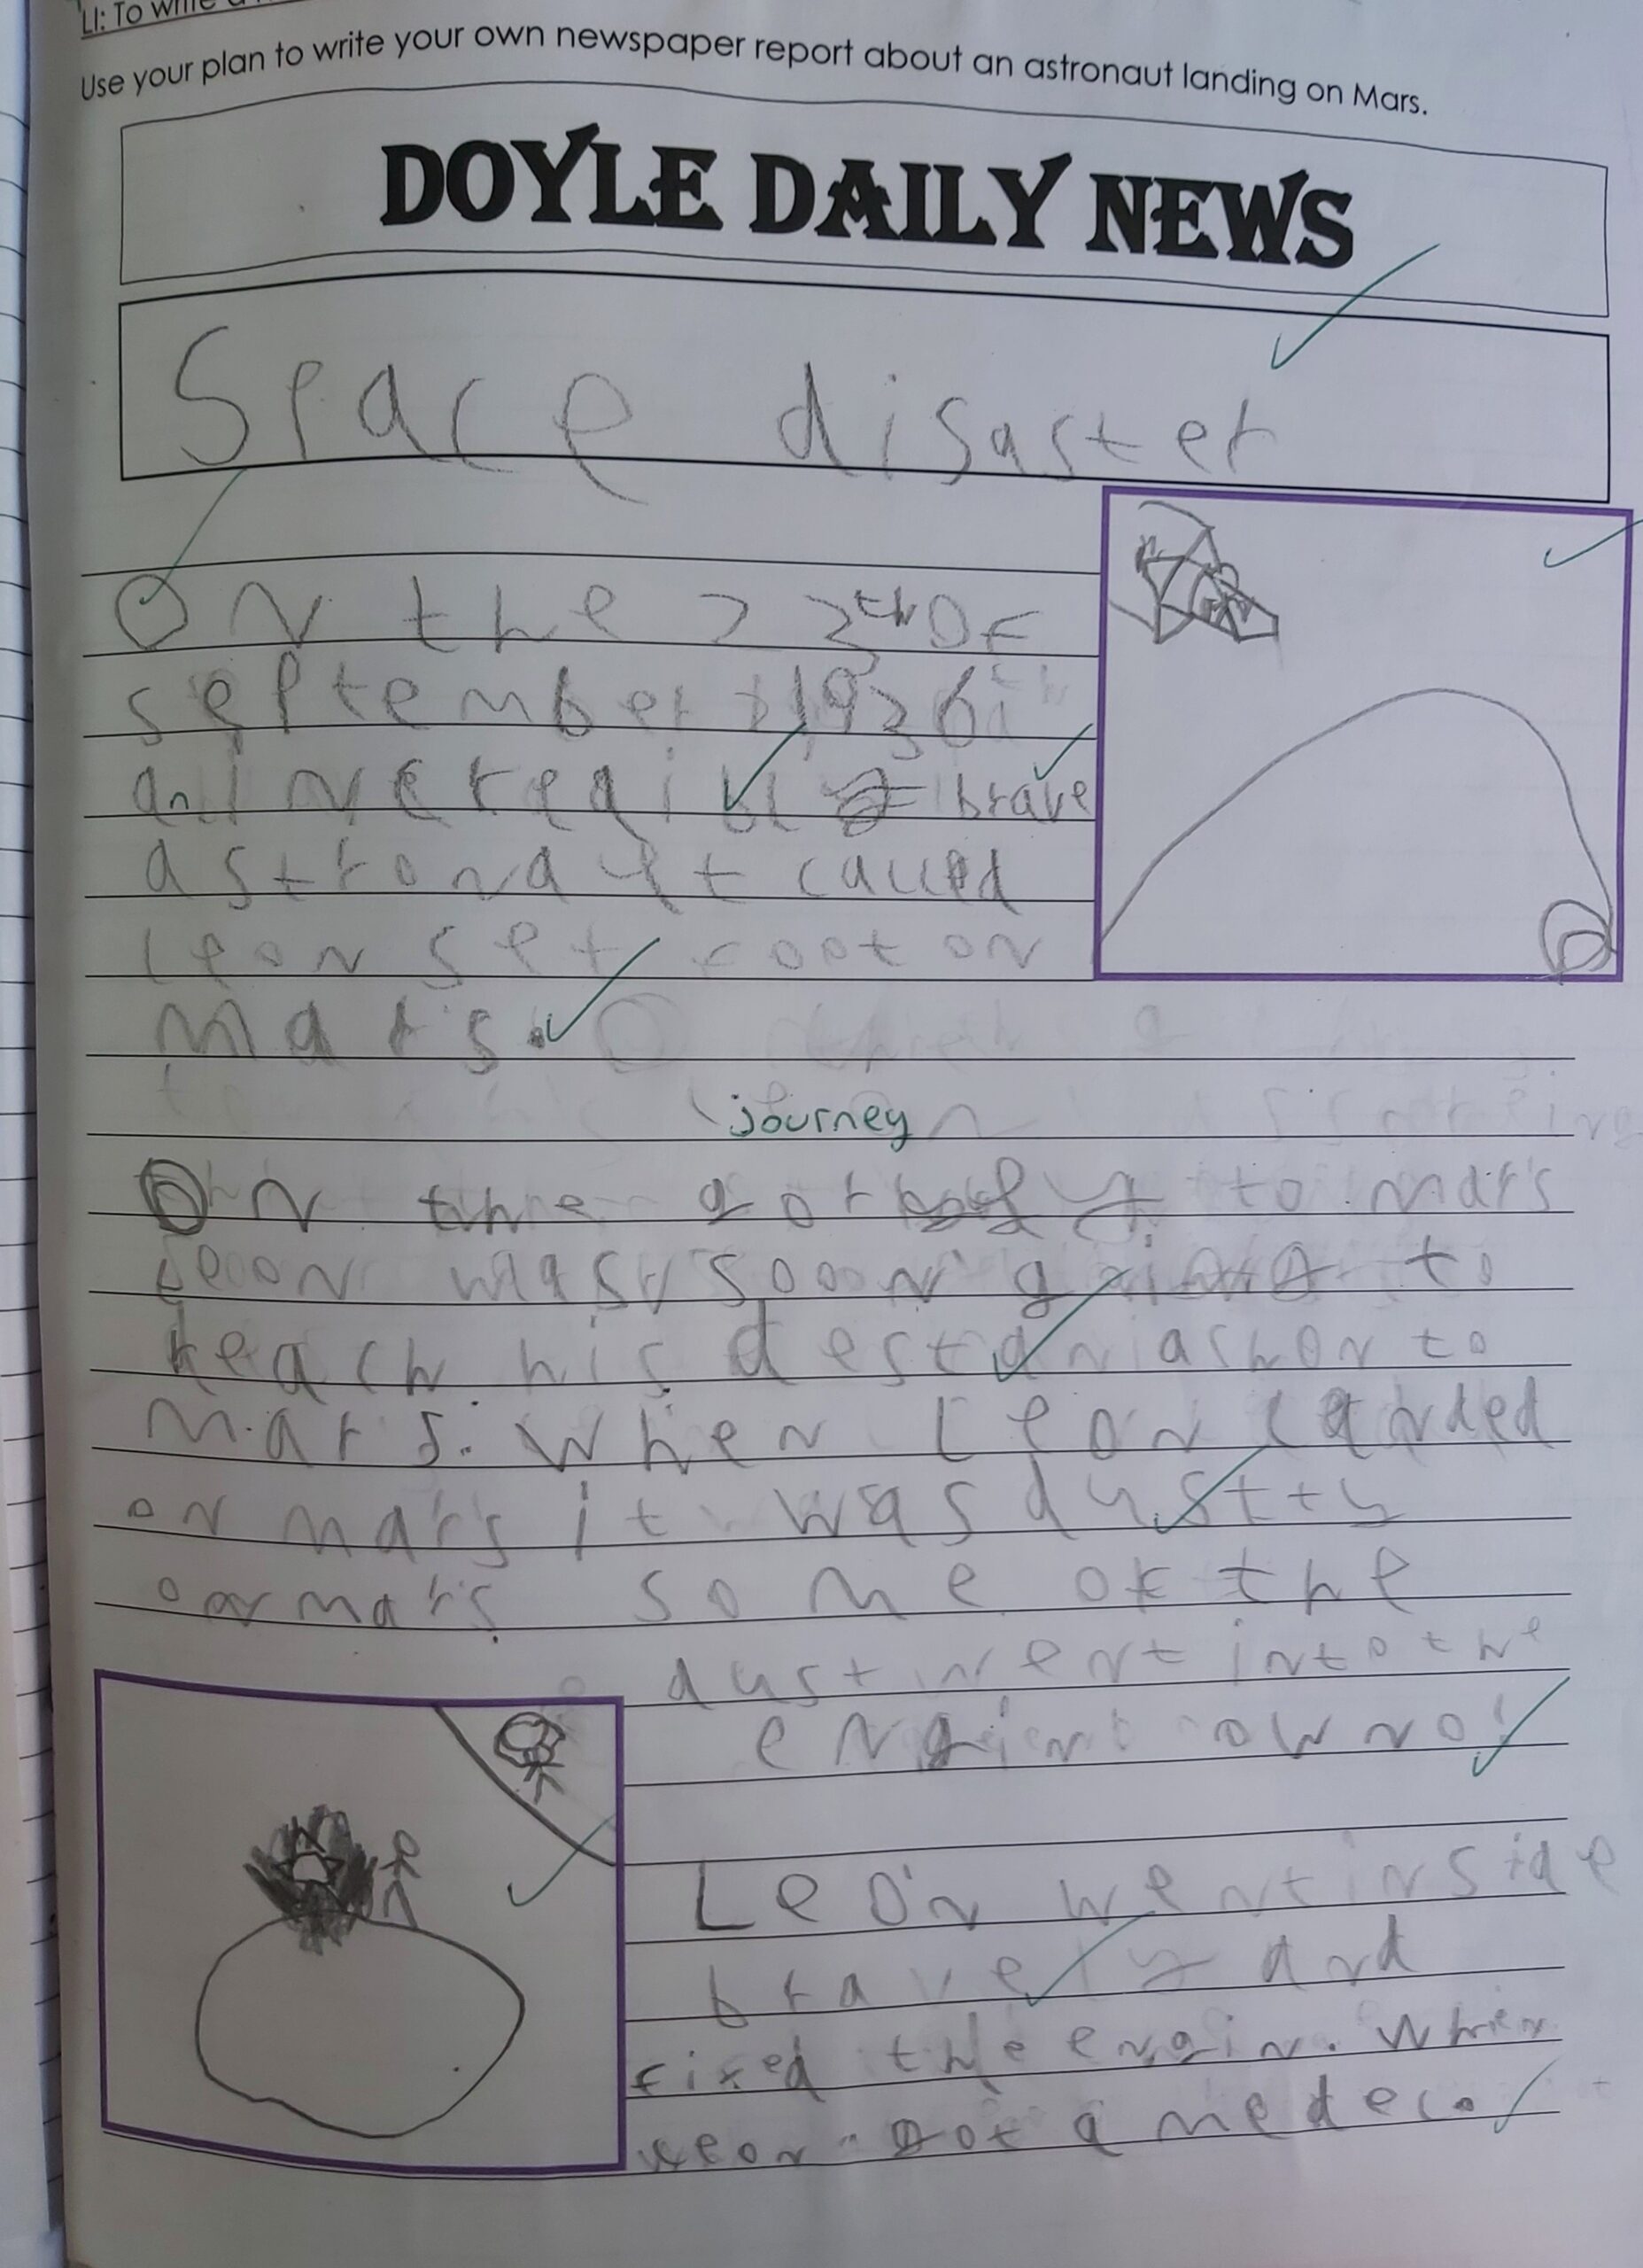 LI: To write a
Use your plan to write your own newspaper report about an astronaut landing on Mars.
DOYLE DAILY NEWS
Space disaster
On the 22th of
september 1936
an brave
astronaut called
leon set foot on
mars.
journey
On the to mars
leon was soon going to
reach his destaniashon to
mars. When Leon landed
on mars it was dustty
on mars some of the
dust went into the
engin ow no!
Leon went inside
bravely and
fixed the engin. When
leon got a medel.